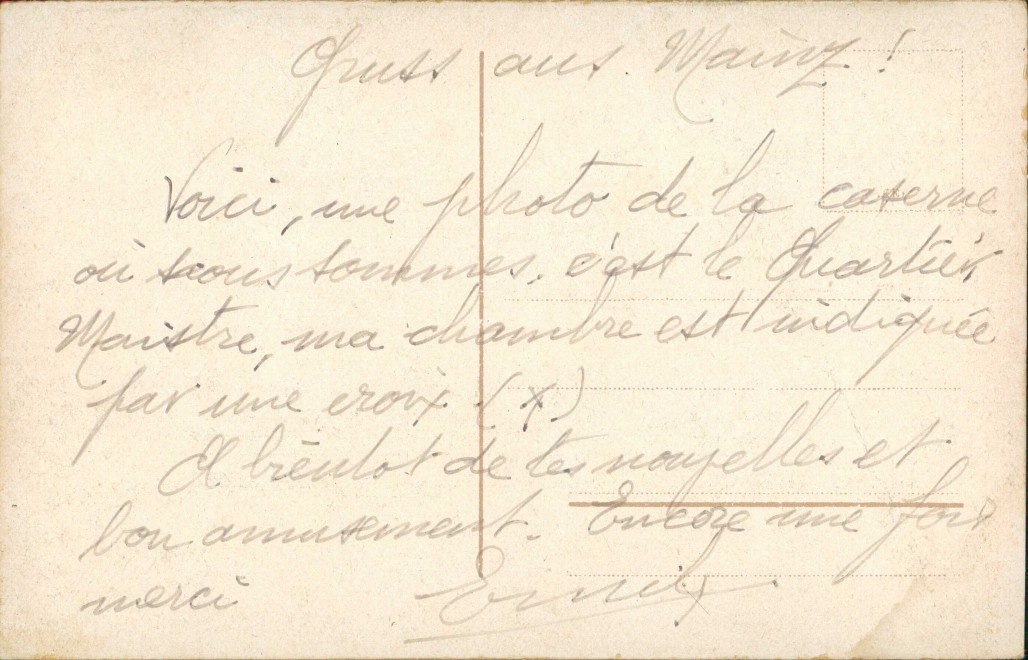 Gruss aus Mainz !
Voici, une photo de la caserne
où nous sommes, c'est le Quartier
Maistre, ma chambre est indiquée
par une croix (x)
A bientot de tes nouvelles et
bon amusement. Encore une fois
merci Emile